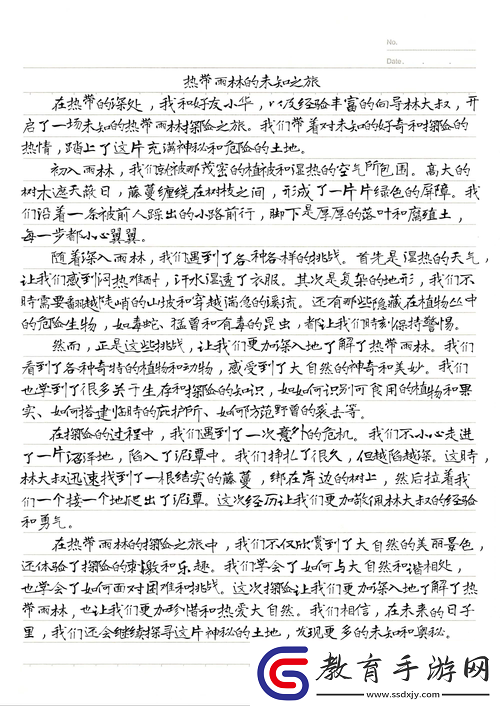 No.
Date . . .
热带雨林的未知之旅
在热带的深处，我和好友小华，以及经验丰富的向导林大叔，开
启了一场未知的热带雨林探险之旅。我们带着对未知的好奇和探险的
热情，踏上了这片充满神秘和危险的土地。
初入雨林，我们就被那茂密的植被和湿热的空气所包围。高大的
树木遮天蔽日，藤蔓缠绕在树枝之间，形成了一片片绿色的屏障。我
们沿着一条被前人踩出的小路前行，脚下是厚厚的落叶和腐殖土，
每一步都小心翼翼。
随着深入雨林，我们遇到了各种各样的挑战。首先是湿热的天气，
让我们感到闷热难耐，汗水湿透了衣服。其次是复杂的地形，我们不
时需要翻越陡峭的山坡和穿越湍急的溪流。还有那些隐藏在植物丛中
的危险生物，如毒蛇、猛兽和有毒的昆虫，都让我们时刻保持警惕。
然而，正是这些挑战，让我们更加深入地了解了热带雨林。我们
看到了各种奇特的植物和动物，感受到了大自然的神奇和美妙。我们
也学到了很多关于生存和探险的知识，如如何识别可食用的植物和果
实、如何搭建临时的庇护所、如何防范野兽的袭击等。
在探险的过程中，我们遇到了一次意外的危机。我们不小心走进
了一片沼泽地，陷入了泥潭中。我们挣扎了很久，但越陷越深。这时，
林大叔迅速找到了一根结实的藤蔓，绑在岸边的树上，然后拉着我
们一个接一个地爬出了泥潭。这次经历让我们更加敬佩林大叔的经验
和勇气。
在热带雨林的探险之旅中，我们不仅欣赏到了大自然的美丽景色，
还体验了探险的刺激和乐趣。我们学会了如何与大自然和谐相处，
也学会了如何面对困难和挑战。这次探险让我们更加深入地了解了热
带雨林，也让我们更加珍惜和热爱大自然。我们相信，在未来的日子
里，我们还会继续探寻这片神秘的土地，发现更多的未知和奥秘。
教育手游网
www.ssdxjy.com